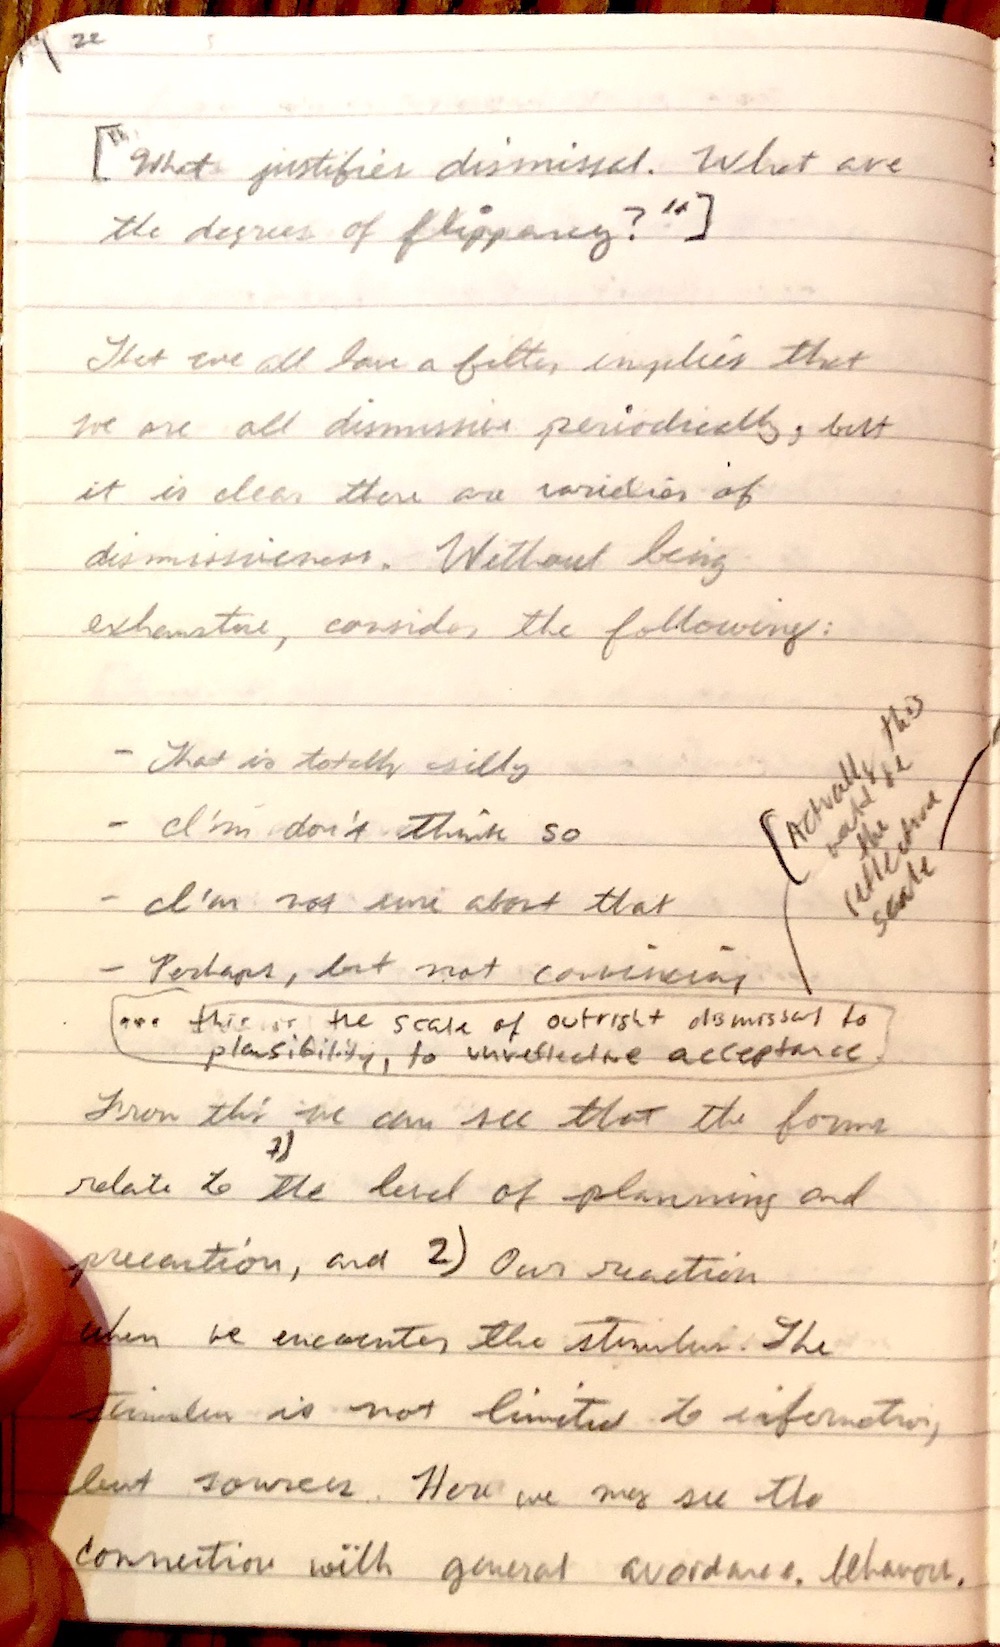 pg 22
["What justifies dismissal. What are
the degrees of flippancy?"]
That we all have a filter implies that
we are all dismissive periodically, but
it is clear there are varieties of
dismissiveness. Without being
exhaustive, consider the following:
- That is totally silly
- I'm don't think so
- I'm not sure about that
- Perhaps, but not convincing
[Actually this
would be
the
reflective
scale
... this is the scale of outright dismissal to
plausibility, to unreflective acceptance.
From this we can see that the forms
relate to 1) the level of planning and
precaution, and 2) Our reaction
when we encounter the stimulus. The
stimulus is not limited to information,
but sources. Here we may see the
connection with general avoidance. behavior.